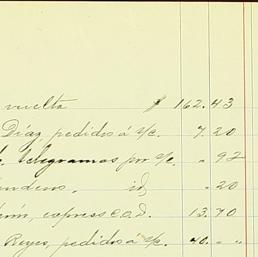 vuelta $ 162.43
Díaz, pedidos á s/c. 7.20
telegramas por s/c. " 92
id " 20
express C.O.D. 13.70
Reyes, pedidos á s/c. 40. " "